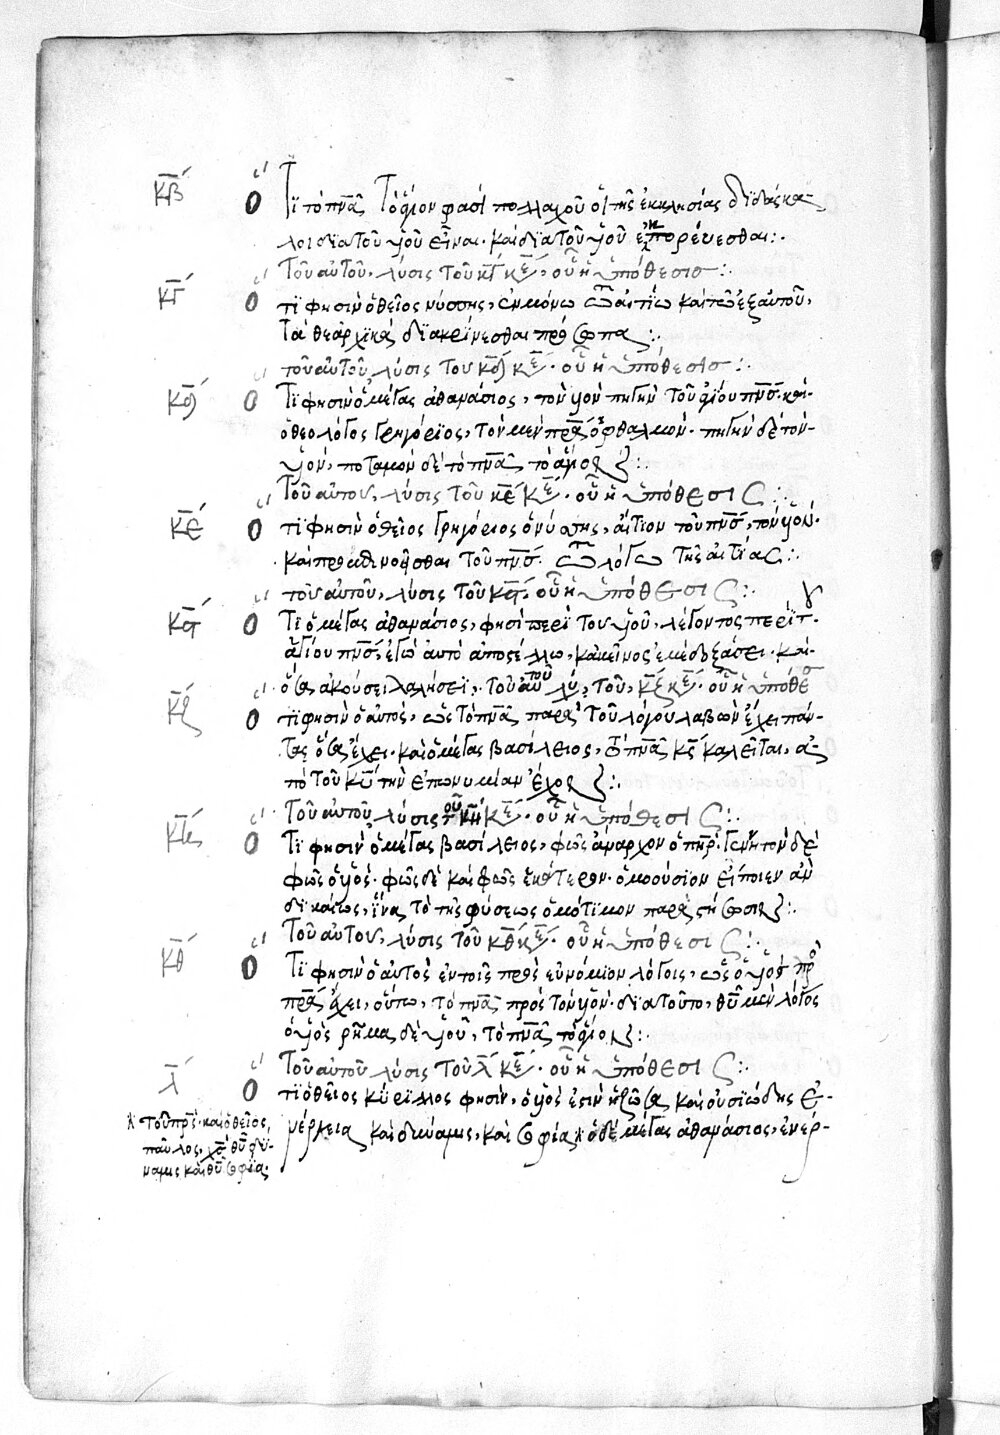 κβ´ Τί τὸ πνᾶ Τὸ ἅγιον φασὶ πολλαχοῦ οἱ τῆς ἐκκλησίας διδάσκα-
λοι διὰ τοῦ υἱοῦ εἶναι· καὶ διὰ τοῦ υἱοῦ ἐκπορεύεσθαι:·
Τοῦ αὐτοῦ, λύσις τοῦ κγ κε´, οὗ ἡ ὑπόθεσις:·
κγ´ τί φησὶν ὁ θεῖος νύσσης, ἐν μόνω τῶ αἰτίω καὶ τῶ ἐξ αὐτοῦ,
Τὰ θεαρχικὰ διακρίνεσθαι πρόσωπα:·
τοῦ αὐτοῦ λύσις του κδ κε´· οὗ ἡ ὑπόθεσις:·
κδ´ Τί φησὶν ὁ μέγας ἀθανάσιος, τὸν υἱὸν πηγὴν τοῦ ἁγίου πνς· καὶ
ὁ θεολόγος Γρηγόριος, τὸν μὲν πρᾶ ὀφθαλμὸν· πηγὴν δὲ τὸν-
υἱὸν, ποταμὸν δὲ τὸ πνᾶ, τὸ ἅγιον:·
Τοῦ αὐτου, λύσις τοῦ κε´ κε´· οὗ ἡ ὑπόθεσις:·
κε´ τί φησὶν ὁ θεῖος Γρηγόριος ὁ νύσσης, αἴτιον τοῦ πνς, τὸν υἱὸν·
καὶ προεπινοεῖσθαι τοῦ πνς· τῶ λόγω τῆς αἰτίας:·
τοῦ αὐτοῦ, λύσις τοῦ κϛ, οὗ ἡ ὑπόθεσις:·
κϛ´ Τί ὁ μέγας ἀθανάσιος, φησὶ περὶ του υἱοῦ, λέγοντος περὶ τ-
ἁγίου πνς, ἐγὼ αὐτὸ ἀποστέλλω, κἀκεῖνος ἐμὲ δοξάσει· καὶ-
ὅσα ἀκούσει λαλήσει, Τοῦ αὐτοῦ λύ, τοῦ, κζ κε´· οὗ ἡ ὑπόθε
κζ´ τί φησὶν ὁ αὐτὸς, ὡς τὸ πνᾶ παρὰ τοῦ λόγου λαβὼν ἔχει πάν-
τας ὅσα ἔχει· καὶ ὁ μέγας βασίλειος,
πὸ τοῦ κυ τὴν ἐπωνυμίαν ἔχον:·
Τοῦ αὐτοῦ, λύσις τοῦ κη κε´· οὗ ἡ ὑπόθεσις:·
κη´ Τί φησὶν ὁ μέγας βασίλειος, φῶς ἄναρχον ὁ πηρ· γεννητὸν δὲ
φῶς ὁ υἱὸς· φῶς δὲ καὶ φῶς ἑκάτερον· ὁμοούσιον εἴποιεν ἂν
δικαίως, ἵνα τὸ τῆς φύσεως ὁμότιμον παραστήσωσι:·
Τοῦ αὐτου, λύσις τοῦ κθ κε´· οὗ ἡ ὑπόθεσις:·
κθ´ Τί φησὶν ὁ αὐτὸς ἐν τοῖς πρὸς εὐνόμιον λόγοις, ὡς ὁ υἱὸς πρὸ
πρᾶ ἔχει, οὕτω, τὸ πνᾶ πρὸς τὸν υἱὸν· διατοῦτο, θυ μὲν λόγος
ὁ υἱὸς ῥῆμα δὲ υἱοῦ, τὸ πνᾶ τὸ ἅγιον:·
Τοῦ αὐτοῦ λύσις τοῦ λ κε´· οὗ ἡ ὑπόθεσις:·
λ´ τί ὁ θεῖος κύριλλος φησὶν, ὁ υἱὸς ἐστὶν ἡ ζῶσα καὶ οὐσιώδης ἐ-
νέργεια καὶ δύναμις, καὶ σοφία ὁ δὲ μέγας ἀθανάσιος, ἐνέρ-
τοῦ πρς· καὶ ὁ θεῖος,
παῦλος, χς θυ δύ-
ναμις καὶ θυ σοφία.